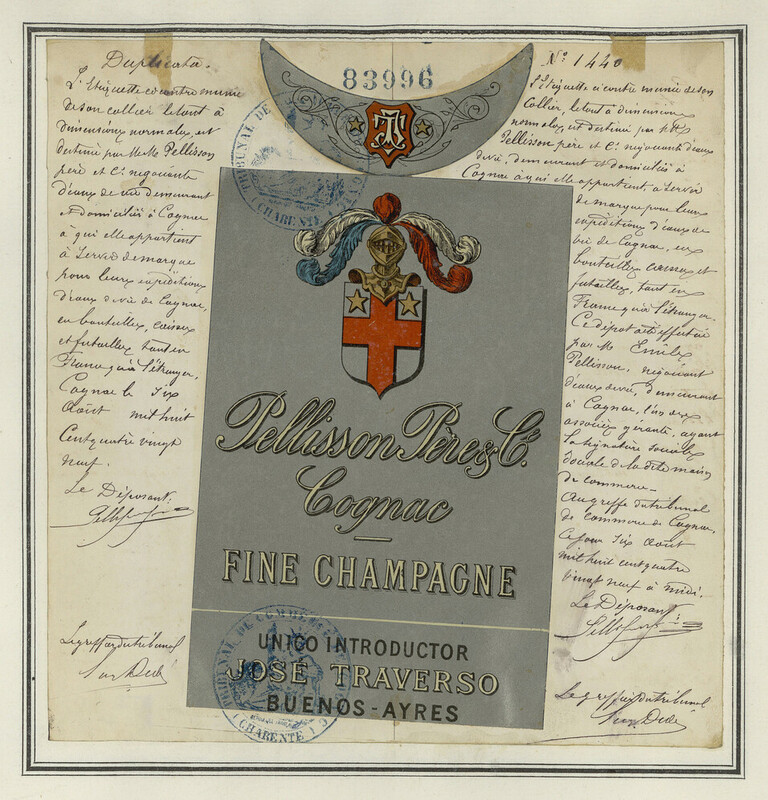 Duplicata.
L'Etiquette ci contre munie
de son collier le tout à
dimensions normales, est
destiné par MM. Pellisson
père et Cie négociants
d'eaux de vie demeurant
et domiciliés à Cognac
à qui elle appartient
à Servir de marque
pour leurs expéditions
d'eaux de vie de Cognac,
en bouteilles, caisses
et futailles, tant en
France qu'à l'étranger.
Cognac le Six
Août mil huit
Cent quatre vingt
neuf.
Le Déposant:
Le greffier du tribunal
83996
TRIBUNAL DE
(CHARENTE)
Pellisson Père & Cie.
Cognac
FINE CHAMPAGNE
UNICO INTRODUCTOR
JOSÉ TRAVERSO
BUENOS-AYRES
TRIBUNAL DE COMMERCE
(CHARENTE)
No. 1440
L'Etiquette ci contre munie de son
Collier, le tout à dimensions
normales, est destiné par MM.
Pellisson père et Cie négociants d'eaux
de vie, demeurant et domiciliés à
Cognac à qui elle appartient, à Servir
de marque pour leurs
expéditions d'eaux de
vie de Cognac, en
bouteilles, caisses et
futailles, tant en
France qu'à l'étranger.
Ce dépôt a été effectué
par M. Emile
Pellisson, négociant
d'eaux de vie, demeurant
à Cognac, l'un des
associés gérants, ayant
la signature sociale
de la dite maison
de commerce.
Au greffe du tribunal
de commerce de Cognac,
Ce jour Six Août
mil huit cent quatre
vingt neuf à midi.
Le Déposant:
Le greffier du tribunal